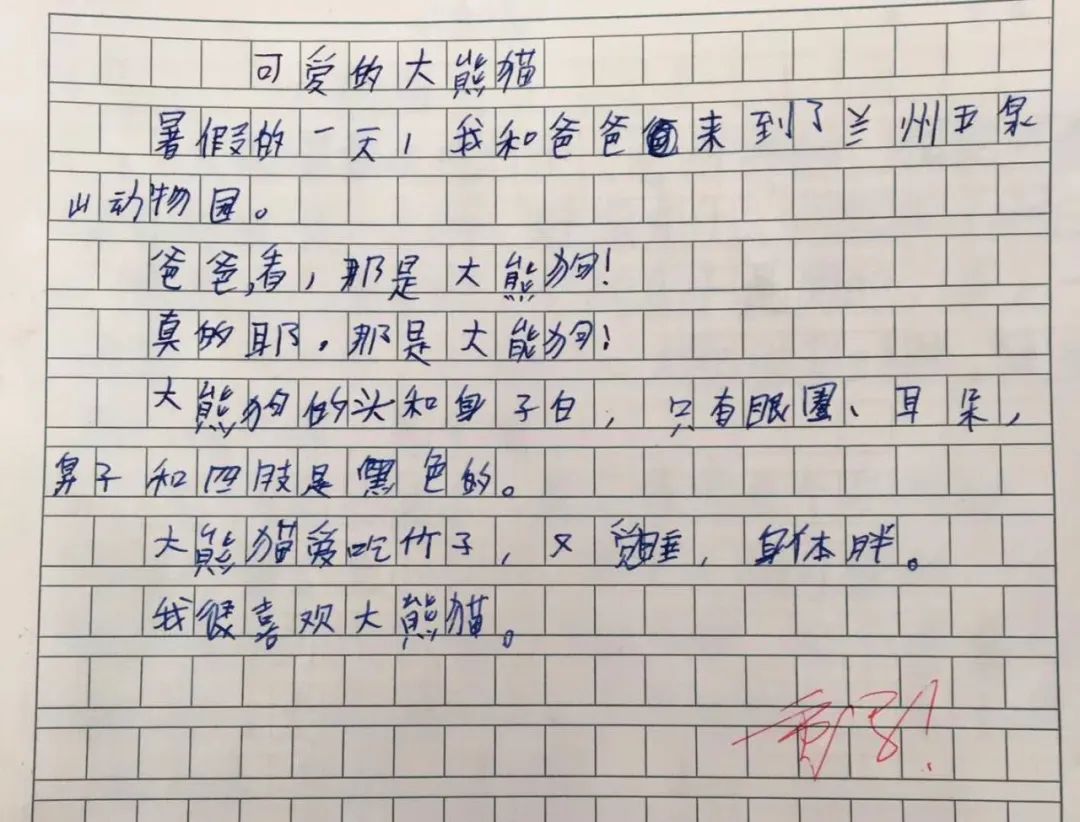 可爱的大熊猫
暑假的一天，我和爸爸来到了兰州五泉
山动物园。
爸爸,看，那是大熊狗！
真的耶，那是大能狗！
大熊狗的头和身子白，只有眼圈、耳朵，
鼻子和四肢是黑色的。
大熊猫爱吃竹子，又觉睡，身体胖。
我很喜观大熊猫。
重写！